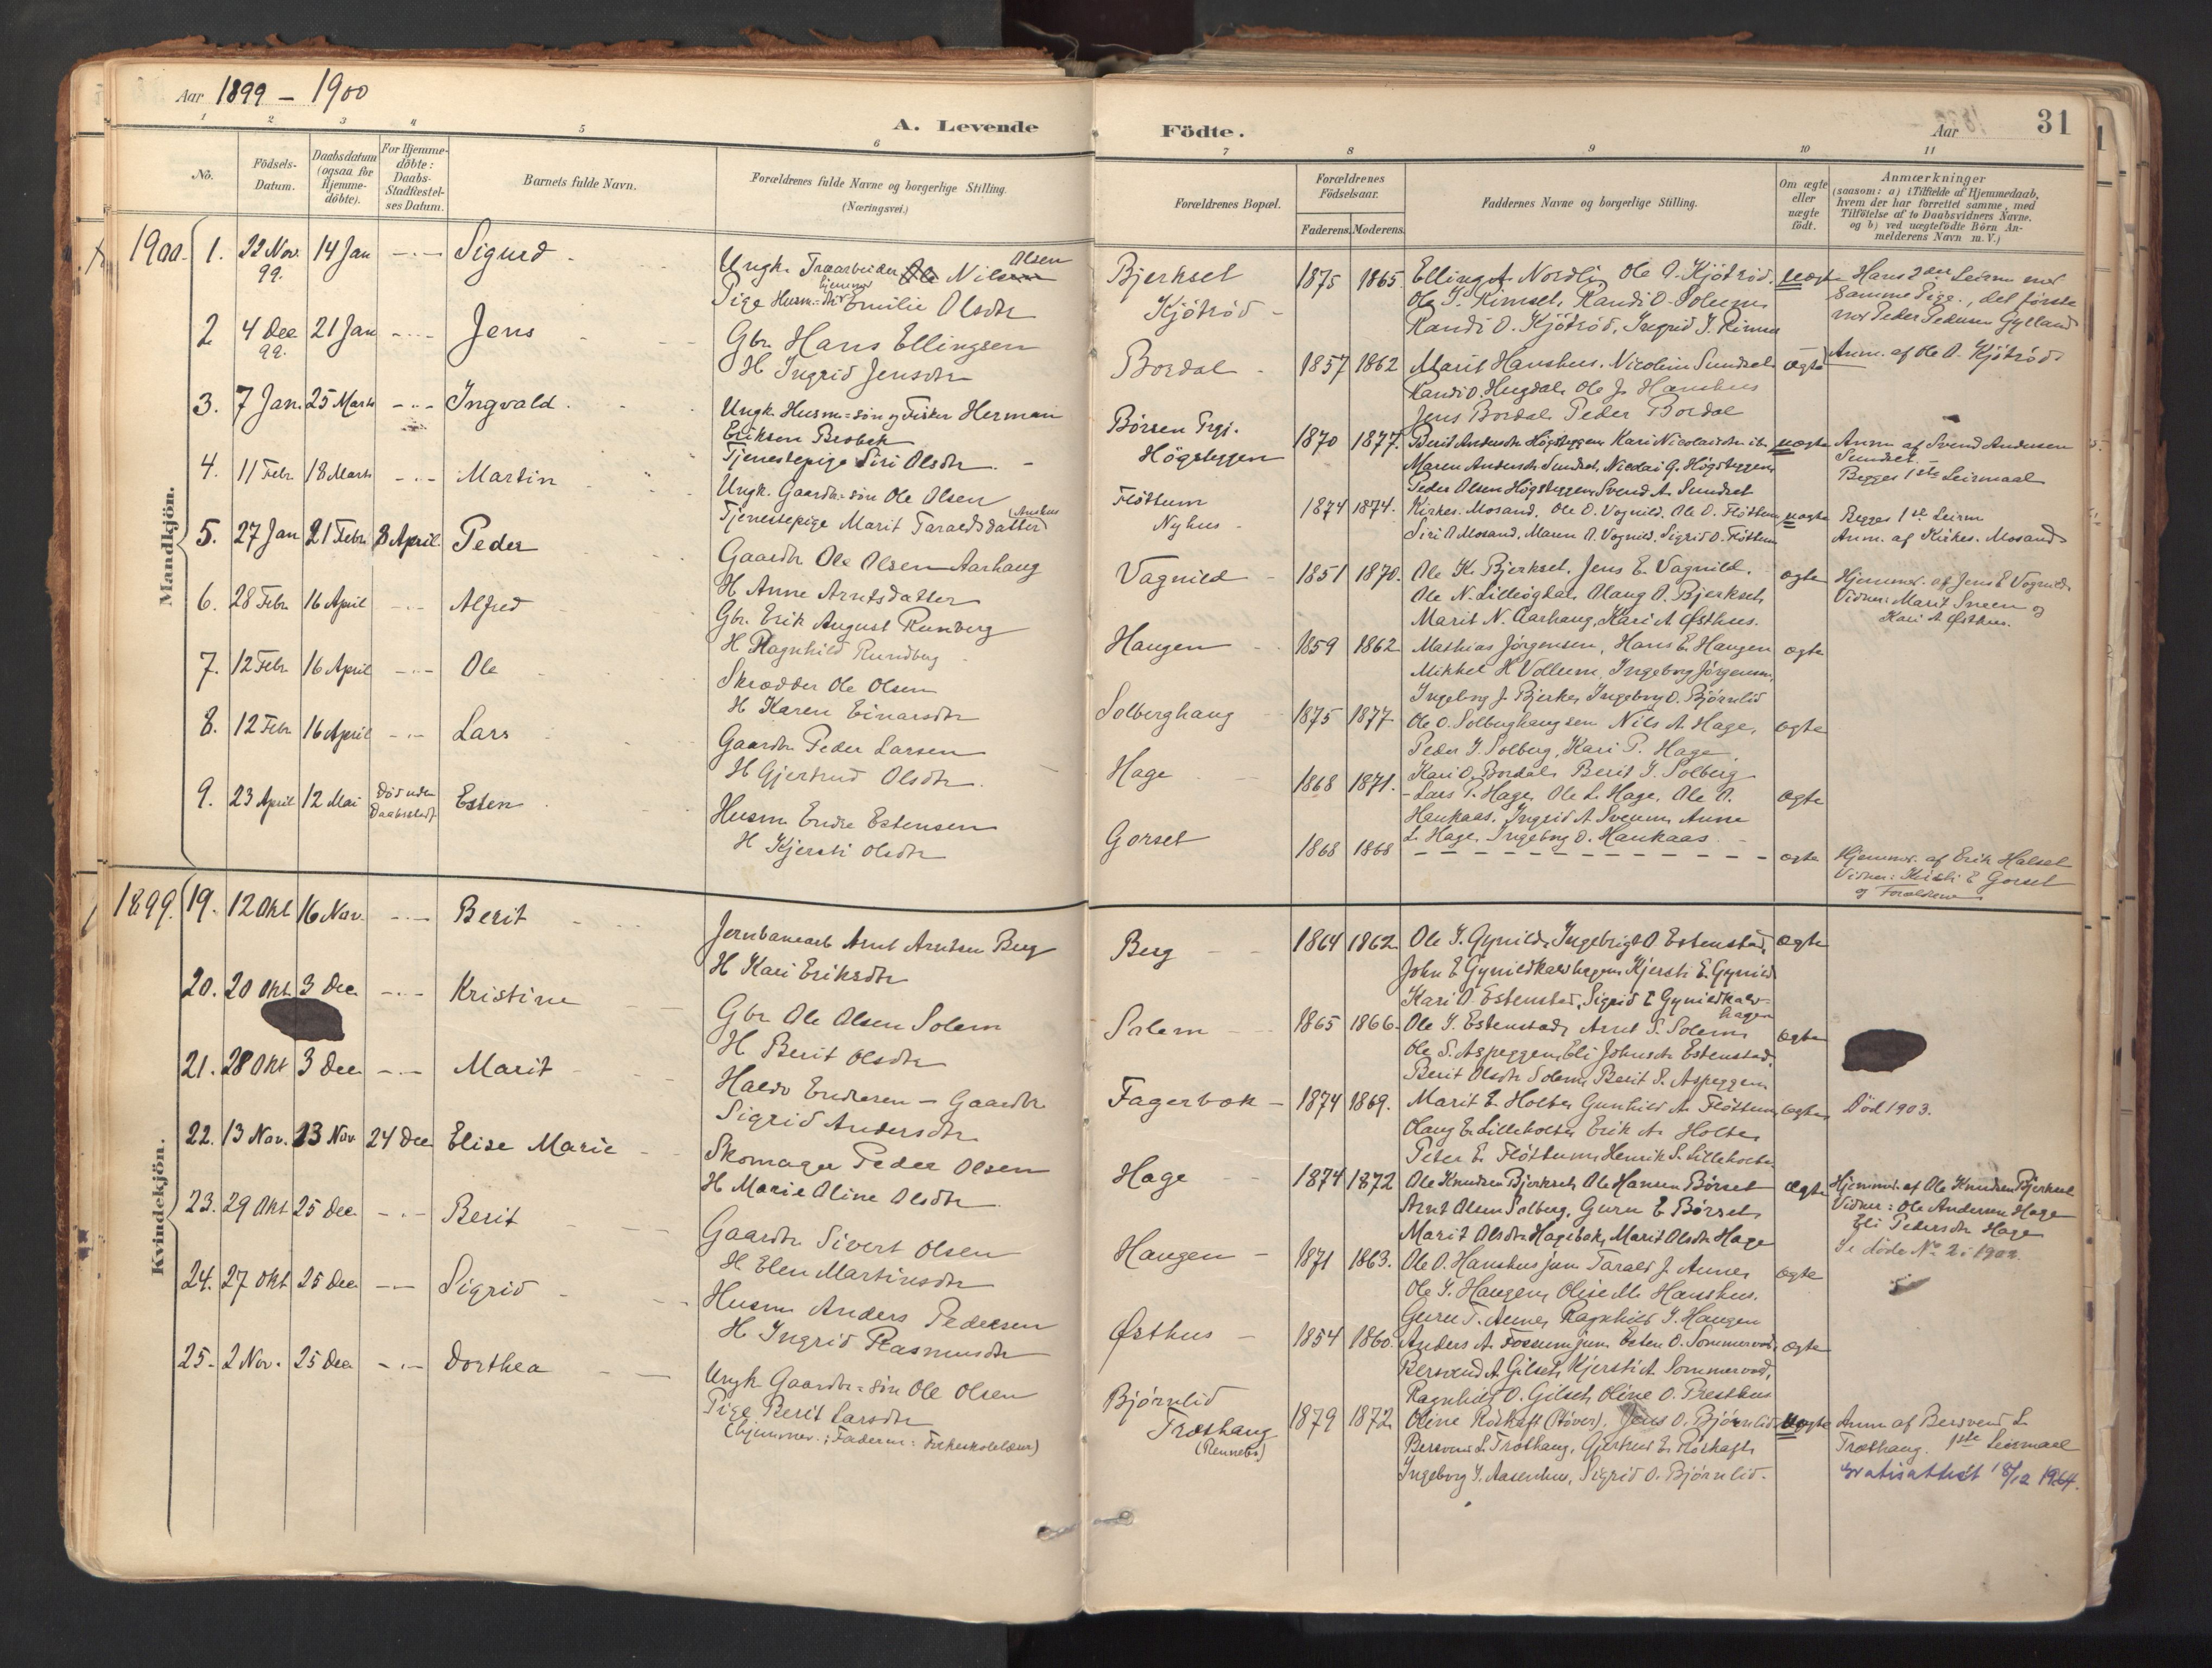 Aar 1899 - 1900
A. Levende Födte.
Aar
31
1 2 3 4 5 6 7 8 9 10 11
No.
Födsels-Datum.
Daabsdatum (ogsaa for Hjemme-döbte).
For Hjemme-döbte: Daabs-Stadfæstel-ses Datum.
Barnets fulde Navn.
Forældrenes fulde Navne og borgerlige Stilling. (Næringsvei.)
Forældrenes Bopæl.
Forældrenes Födselsaar.
Faderens. Moderens.
Faddernes Navne og borgerlige Stilling.
Om ægte eller uægte födt.
Anmærkninger
(saasom: a) i Tilfælde af Hjemmedaab, hvem der har forrettet samme, med Tilföielse af to Daabsvidners Navne. og b) ved uægtefödte Börn Anmelderens Navn m. V.)
Mandkjön.
1900. 1. 22 Nov. 99. 14 Jan Sigurd
Ungk. Træarbeider Ole Nilsen Olsen
Pige Husm=dtr Emilie Olsdtr
Bjerkset
Kjötröd
1875 1865. Elling A. Nordli, Ole O. Kjötröd. uægte
Ole J. Rimset, Randi O. Solum,
Randi O. Kjötröd, Ingrid J. Rimset
Hans 2den Leierm. med
samme Pige, det første
med Peder Pedersen Gylland
Anm. af Ole O. Kjötröd
2 4 Dec 99. 21 Jan Jens
Gbr. Hans Ellingsen
H Ingrid Jensdtr
Bordal
1857 1862 Marit Hanshus. Nicoline Sundset ægte
Randi O. Hugdal, Ole J. Hanshus
Jens Bordal, Peder Bordal
3. 7 Jan. 25 Marts Ingvald
Ungk. Husm=søn og Fisker Herman
Eriksen Brobak
Tjenestepige Siri Olsdtr
Börsen Prgj.
Högsteggen
1870 1877. uægte
Maren Andersdtr Sundset, Nicolai G. Högsteggen
Peder Olsen Högsteggen, Svend A. Sundset
Anm. af Svend Andersen
Sundset.
Begges 1ste Leiermaal
4. 11 Febr. 18 Marts Martin
Ungk. Gaardbr=søn Ole Olsen
Tjenestepige Marit Taraldsdatter (Aunhus)
Flöttum
Nyhus
1874 1874. Kirkes. Mosand, Ole O. Vognild, Ole O. Flöttum uægte
Siri O Mosand, Maren O. Vognild, Sigrid O. Flöttum
Begges 1ste Leierm
Anm. af Kirkes. Mosand
5. 27 Jan 21 Febr 8 April Peder
Gaardbr Ole Olsen Aarhaug
H Anne Arntsdatter
Vagnild
1851 1870. Ole K. Bjerkset, Jens E. Vagnild. ægte
Ole N. Lilleögdal, Olaug O. Bjerkset,
Marit N. Aarhaug, Kari A Østhus.
Hjemmed. af Jens E Vognild.
Vidner: Marit Sneen og
Kari A Østhus.
6. 28 Febr 16 April Alfred
Gbr. Erik August Runberg
H Ragnhild Rundberg
Haugen
1859 1862 Mathias Jörgensen, Hans E. Haugen ægte
Mikkel H Vollum, Ingeborg Jörgensen,
Ingeborg J. Bjerke, Ingeborg O. Bjørnlid
7. 12 Febr 16 April Ole
Skrædder Ole Olsen
H Karen Einarsdtr
Solberghaug
1875 1877 Ole O. Solberghaug sen Nils A. Hage, ægte
Peder J. Solberg, Kari P. Hage,
Kari O. Bordal, Berit J. Solberg
8. 12 Febr 16 April Lars
Gaardbr Peder Larsen
H Gjertrud Olsdtr
Hage
1868 1871. Lars P. Hage, Ole L. Hage, Ole O. ægte
Haukaas, Ingrid A Sveum, Anne
L. Hage, Ingeborg O. Haukaas.
9. 23 April 12 Mai Død uden Daabsstadf Esten
Husm Endre Estensen
H Kjersti Olsdtr
Gorset
1868 1868 ægte
Hjemmed. af Erik Halset
Vidner: Kjersti E Gorset
og Forældrene
Kvindekjön.
1899. 19. 12 Okt 16 Nov. Berit
Jernbanearb Arnt Arntsen Berg
H Kari Eriksdtr
Berg
1864 1862 Ole J. Gynild, Ingebrigt O. Estenstad, ægte
John E Gynildkalvhagen, Kjersti E. Gynild
Kari O. Estenstad, Sigrid E Gynildkalv-
hagen
20. 20 Okt. 3 Dec. Kristine
Gbr Ole Olsen Solem
H Berit Olsdtr
Solem
1865 1866. Ole J. Estenstad, Arnt S. Solem, ægte
Ole S. Aspeggen, Eli Johnsdtr Estenstad,
Berit Olsdtr Solem, Berit S. Aspeggen
21. 28 Okt 3 Dec Marit
Haldo Endresen - Gaardbr
Sigrid Andersdtr
Fagerbak
1874 1869. Marit E Holte, Gunhild A. Flöttum, ægte
Olaug E. Lilleholte, Erik A. Holte,
Peter E. Flöttum, Henrik S. Lilleholte
Död 1903.
22. 13 Nov. 23 Nov 24 Dec Elise Marie
Skomager Peder Olsen
H Marie Oline Olsdtr
Hage
1874 1872 Ole Knudsen Bjerkset, Ole Hansen Børset ægte
Arnt Olsen Solberg, Guru E Børset,
Marit Olsdtr Hagebak, Marit Olsdtr Hage
Hjemmd. af Ole Knudsen Bjerkset
Vidner: Ole Andersen Hage
Eli Pedersdtr Hage
Se døde No 2 i 1902.
23. 29 Okt 25 Dec. Berit
Gaardbr Sivert Olsen
H Elen Martinsdtr
Haugen
1871 1863. Ole O. Hanshus jun Tarald J. Aunet ægte
Ole J. Haugen, Oline M. Hanshus.
Guru T. Aune, Ragnhild J. Haugen
24. 27 Okt 25 Dec Sigrid
Husm Anders Pedersen
H Ingrid Rasmusdtr
Østhus
1854 1860. Anders A. Fossum jun. Esten O. Sommervold, ægte
Bersvend A. Gilset, Kjersti A. Sommervold,
Ragnhild O. Gilset, Oline O. Presthus
25. 2 Nov. 25 Dec Dorthea
Ungk. Gaardbr=søn Ole Olsen
Pige Berit Larsdtr
(hjemmev.; Faderen: Folkeskolelærer)
Bjørnlid
Træthaug
(Rennebo)
1879 1872 Oline Roskaft (Støver), Jens O. Bjørnlid uægte
Bersvend L. Træthaug, Gjertrud E. Roskaft
Ingeborg J. Aasenhus, Sigrid O. Bjørnlid.
Anm af Bersvend L.
Træthaug. 1ste Leiermaal
Gratisattest 18/12 1964.